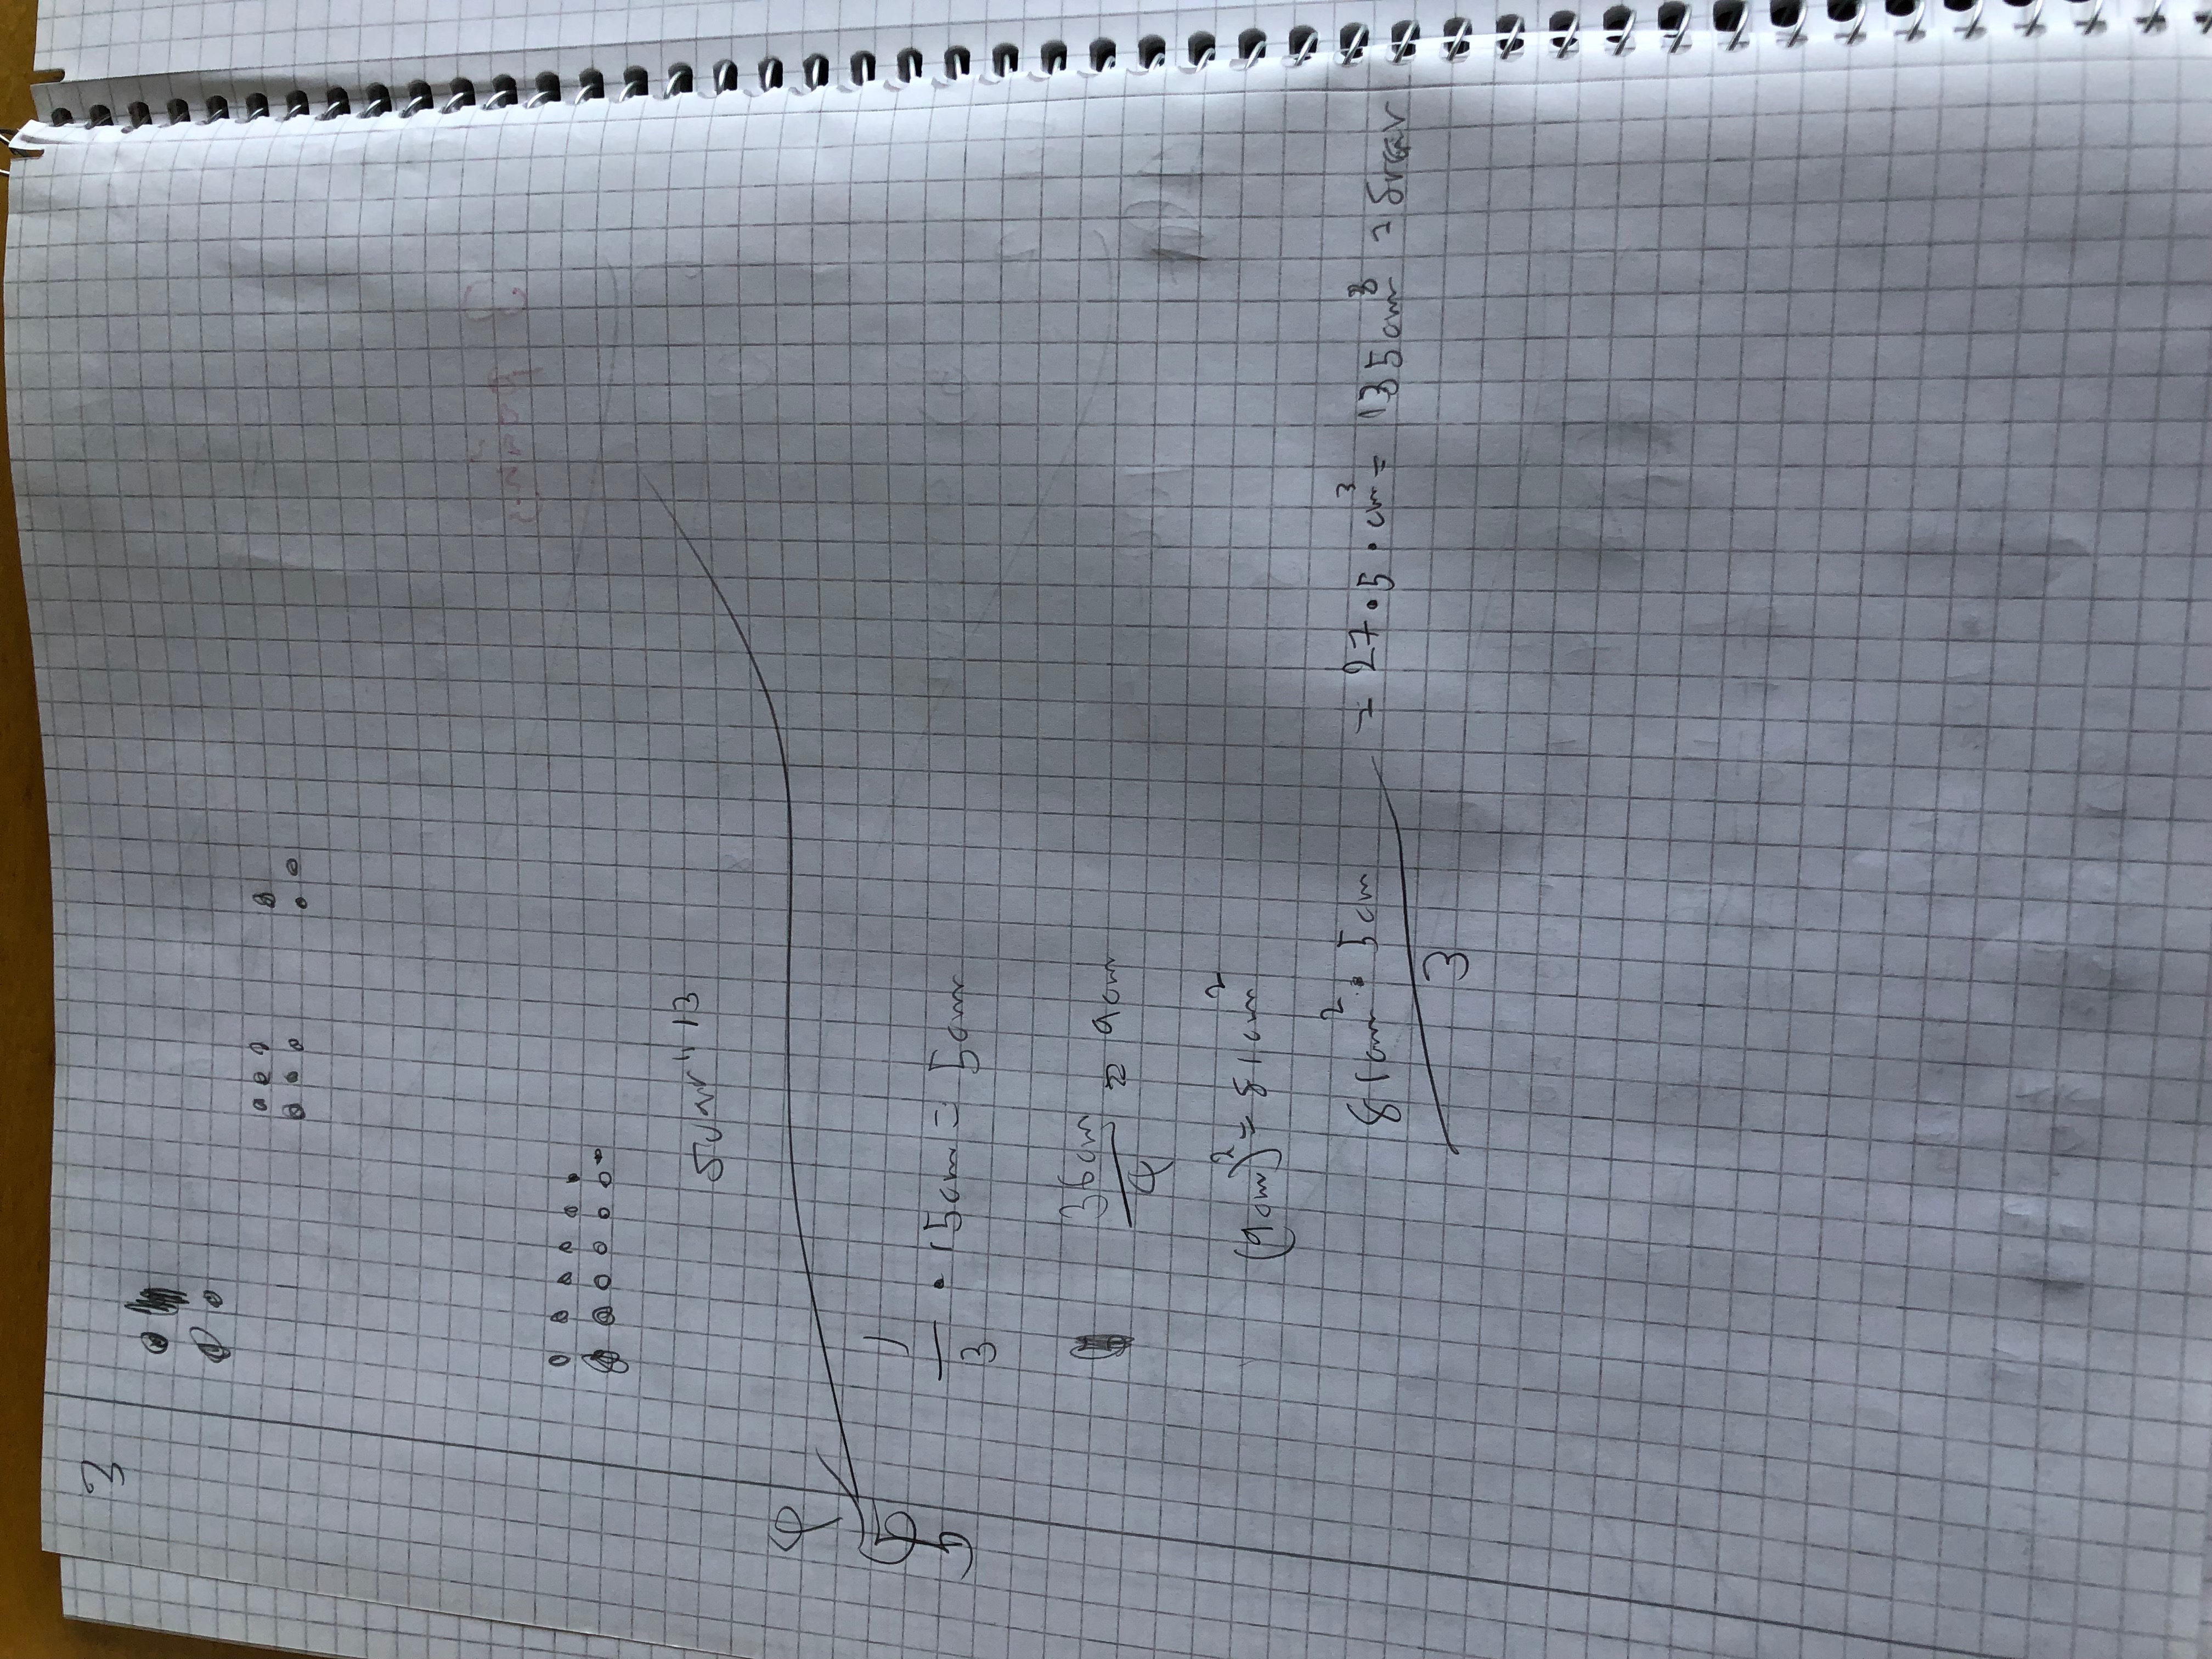 3
Svar: 13
4
5
1/3 · 15cm = 5cm
36cm/4 = 9cm
(9cm)² = 81cm²
81cm² · 5cm / 3 = 27 · 5 · cm³ = 135cm³ = Svar